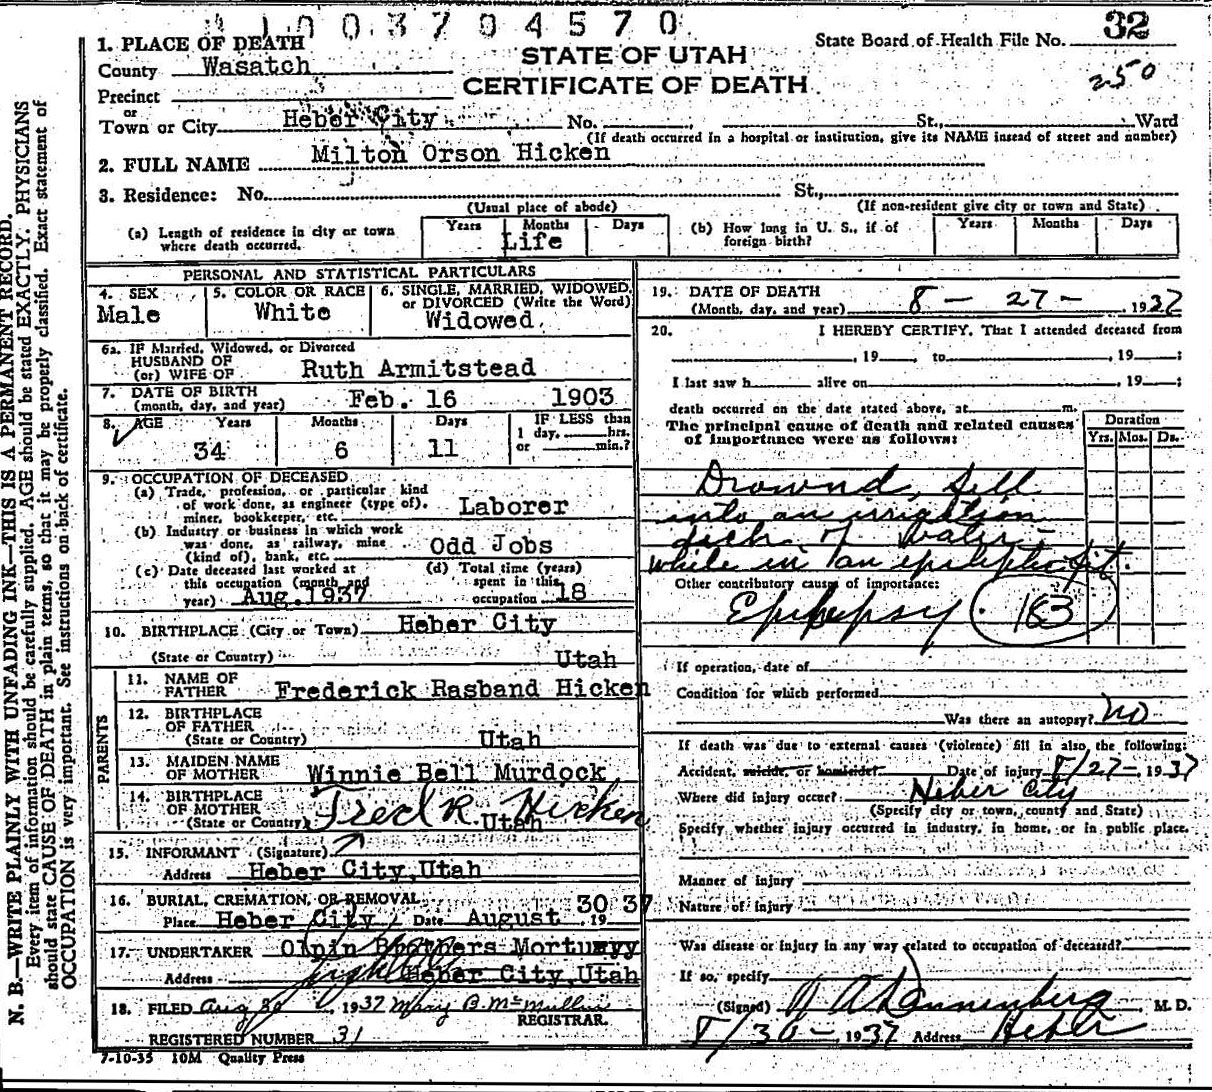 1003704570
1. PLACE OF DEATH
County Wasatch
STATE OF UTAH
CERTIFICATE OF DEATH
State Board of Health File No. 32
250
Precinct
or
Town or City Heber City No. St., Ward
(If death occurred in a hospital or institution, give its NAME insead of street and number)
2. FULL NAME Milton Orson Hicken
3. Residence: No. St.,
(Usual place of abode) (If non-resident give city or town and State)
(a) Length of residence in city or town where death occurred. Years Months Days
Life
(b) How long in U. S., if of foreign birth? Years Months Days
PERSONAL AND STATISTICAL PARTICULARS
4. SEX
Male
5. COLOR OR RACE
White
6. SINGLE, MARRIED, WIDOWED, or DIVORCED (Write the Word)
Widowed
6a. IF Married, Widowed, or Divorced
HUSBAND OF
(or) WIFE OF Ruth Armitstead
7. DATE OF BIRTH
(month, day, and year) Feb. 16 1903
8. AGE Years Months Days IF LESS than
1 day, hrs.
or min.?
34 6 11
9. OCCUPATION OF DECEASED
(a) Trade, profession, or particular kind
of work done, as engineer (type of),
miner, bookkeeper, etc. Laborer
(b) Industry or business in which work
was done, as railway, mine
(kind of), bank, etc. Odd Jobs
(c) Date deceased last worked at
this occupation (month and
year) Aug. 1937
(d) Total time (years)
spent in this
occupation 18
10. BIRTHPLACE (City or Town) Heber City
(State or Country) Utah
PARENTS
11. NAME OF
FATHER Frederick Rasband Hicken
12. BIRTHPLACE
OF FATHER
(State or Country) Utah
13. MAIDEN NAME
OF MOTHER Winnie Bell Murdock
14. BIRTHPLACE
OF MOTHER
(State or Country) Utah
Fred R. Hicken
15. INFORMANT (Signature)
Address Heber City, Utah
16. BURIAL, CREMATION, OR REMOVAL
Place Heber City Date August 30 1937
17. UNDERTAKER Olpin Brothers Mortuary
Address Heber City, Utah
18. FILED Aug 30, 1937 Mary B. McMullin
REGISTRAR.
REGISTERED NUMBER 31
7-10-35 10M Quality Press
19. DATE OF DEATH
(Month, day, and year) 8 - 27 - 1937
20. I HEREBY CERTIFY, That I attended deceased from
, 19 , to , 19 ;
I last saw h alive on , 19 ;
death occurred on the date stated above, at m.
The principal cause of death and related causes
of importance were as follows:
Duration
Yrs. Mos. Ds.
Drownd, fell
into an irrigation
dich of water
while in an epileptic fit.
Other contributory causes of importance:
Epilepsy. 183
If operation, date of
Condition for which performed
Was there an autopsy? no
If death was due to external causes (violence) fill in also the following:
Accident, suicide, or homicide? Date of injury 8/27-, 1937
Where did injury occur? Heber City
(Specify city or town, county and State)
Specify whether injury occurred in industry, in home, or in public place.
Manner of injury
Nature of injury
Was disease or injury in any way related to occupation of deceased?
If so, specify
(Signed) Dannenberg M. D.
8/30-, 1937 Address Heber
N. B.—WRITE PLAINLY WITH UNFADING INK—THIS IS A PERMANENT RECORD.
Every item of information should be carefully supplied. AGE should be stated EXACTLY. PHYSICIANS
should state CAUSE OF DEATH in plain terms, so that it may be properly classified. Exact statement of
OCCUPATION is very important. See instructions on back of certificate.